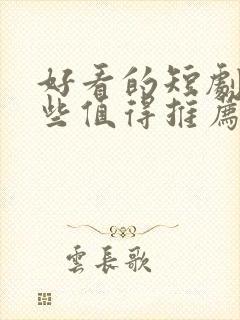 好看的短劇
些值得推薦
雲長歌